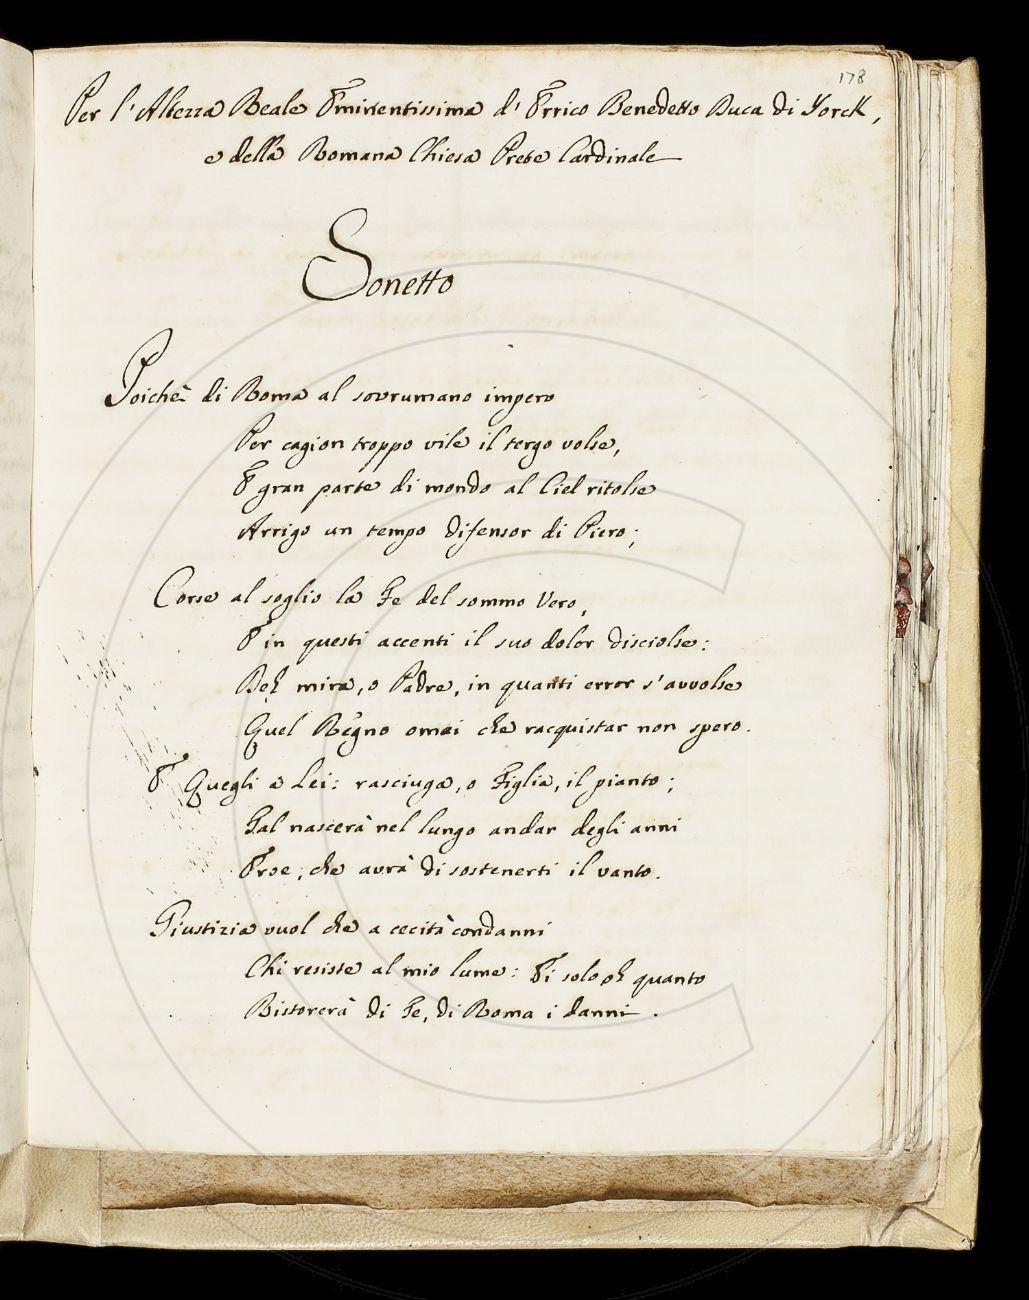 178
Per l'Altezza Reale Eminentissima d'Errico Benedetto Duca di Yorck,
e della Romana Chiesa Prete Cardinale
Sonetto
Poichè di Roma al sovrumano impero
Per cagion troppo vile il tergo volse,
E gran parte di mondo al Ciel ritolse
Arrigo un tempo difensor di Piero;
Corse al soglio la Fe del sommo Vero,
E in questi accenti il suo dolor disciolse:
Deh mira, o Padre, in quanti error s'avvolse
Quel Regno omai che racquistar non spero.
E Quegli a Lei: rasciuga, o Figlia, il pianto;
Tal nascerà nel lungo andar degli anni
Eroe, che avrà di sostenerti il vanto.
Giustizia vuol che a cecità condanni
Chi resiste al mio lume: Ei solo oh quanto
Ristorerà di Fe, di Roma i danni.